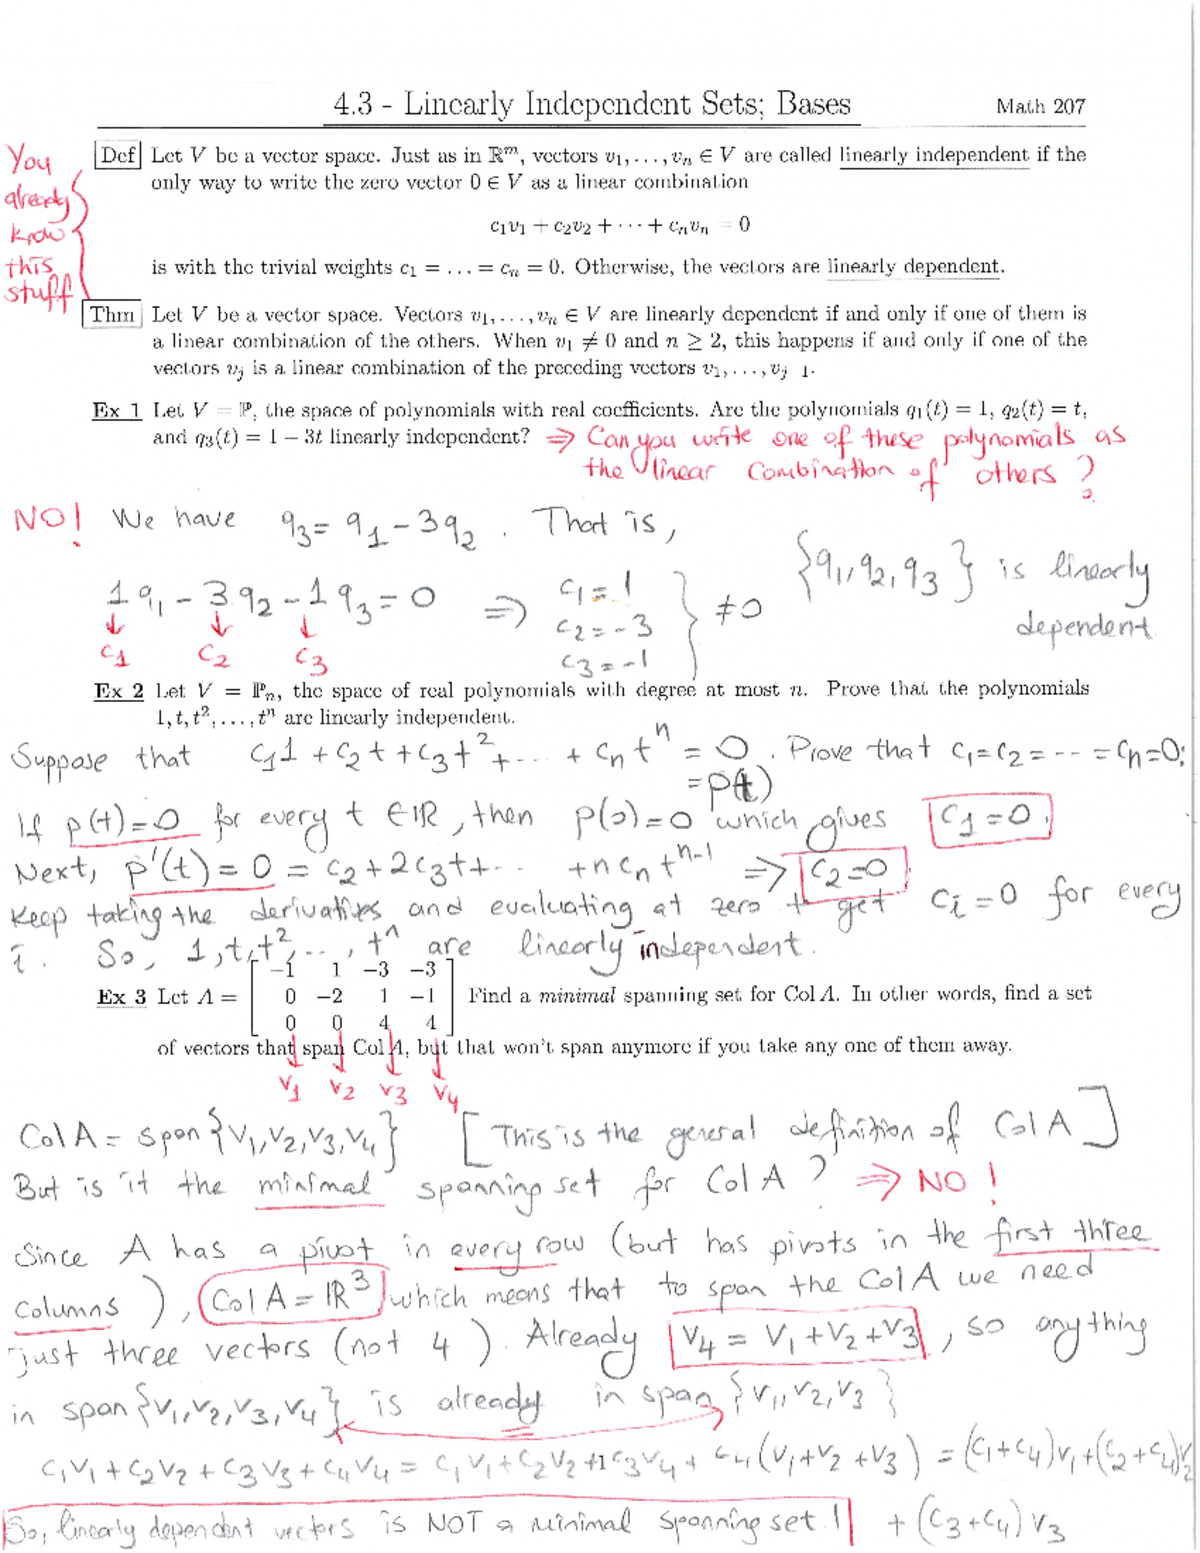 4.3 - Linearly Independent Sets; Bases Math 207
You already know this stuff
Def Let V be a vector space. Just as in ℝᵐ, vectors v₁, . . . , vₙ ∈ V are called linearly independent if the
only way to write the zero vector 0 ∈ V as a linear combination
c₁v₁ + c₂v₂ + · · · + cₙvₙ = 0
is with the trivial weights c₁ = . . . = cₙ = 0. Otherwise, the vectors are linearly dependent.
Thm Let V be a vector space. Vectors v₁, . . . , vₙ ∈ V are linearly dependent if and only if one of them is
a linear combination of the others. When v₁ ≠ 0 and n ≥ 2, this happens if and only if one of the
vectors vⱼ is a linear combination of the preceding vectors v₁, . . . , vⱼ₋₁.
Ex 1 Let V = ℙ, the space of polynomials with real coefficients. Are the polynomials q₁(t) = 1, q₂(t) = t,
and q₃(t) = 1 − 3t linearly independent? ⇒ Can you write one of these polynomials as
the linear combination of others?
NO! We have q₃ = q₁ − 3q₂ . That is,
{q₁, q₂, q₃} is linearly
dependent.
1q₁ − 3q₂ − 1q₃ = 0 ⇒ c₁ = 1
c₂ = −3
c₃ = −1 } ≠ 0
c₁ c₂ c₃
Ex 2 Let V = ℙₙ, the space of real polynomials with degree at most n. Prove that the polynomials
1, t, t², . . . , tⁿ are linearly independent.
Suppose that c₁1 + c₂t + c₃t² + ... + cₙtⁿ = 0. Prove that c₁ = c₂ = -- = cₙ = 0;
= p(t)
If p(t) = 0 for every t ∈ ℝ, then p(0) = 0 which gives c₁ = 0.
Next, p'(t) = 0 = c₂ + 2c₃t + .. + ncₙtⁿ⁻¹ ⇒ c₂ = 0
Keep taking the derivatives and evaluating at zero to get cᵢ = 0 for every
i. So, 1, t, t², ..., tⁿ are linearly independent.
Ex 3 Let A = [ −1 1 −3 −3
0 −2 1 −1
0 0 4 4 ] Find a minimal spanning set for Col A. In other words, find a set
of vectors that span Col A, but that won't span anymore if you take any one of them away.
v₁ v₂ v₃ v₄
Col A = span {v₁, v₂, v₃, v₄} [This is the general definition of Col A]
But is it the minimal spanning set for Col A ? ⇒ NO !
Since A has a pivot in every row (but has pivots in the first three
columns), Col A = ℝ³ which means that to span the Col A we need
just three vectors (not 4). Already v₄ = v₁ + v₂ + v₃, so anything
in span {v₁, v₂, v₃, v₄} is already in span {v₁, v₂, v₃}
c₁v₁ + c₂v₂ + c₃v₃ + c₄v₄ = c₁v₁ + c₂v₂ + c₃v₄ + c₄(v₁ + v₂ + v₃) = (c₁ + c₄)v₁ + (c₂ + c₄)v₂
So, linearly dependent vectors is NOT a minimal spanning set! + (c₃ + c₄)v₃